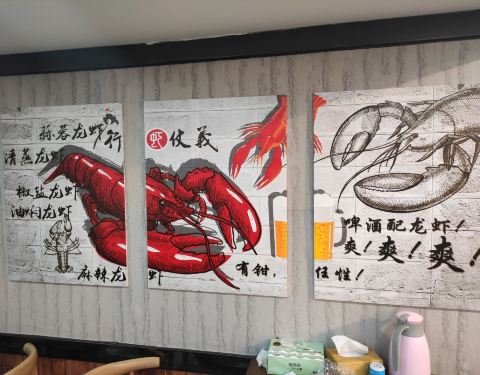 蒜蓉龙虾
清蒸龙虾
椒盐龙虾
油焖龙虾
麻辣龙虾
行虾仗義
有钳，任性！
啤酒配龙虾！
爽！爽！爽！